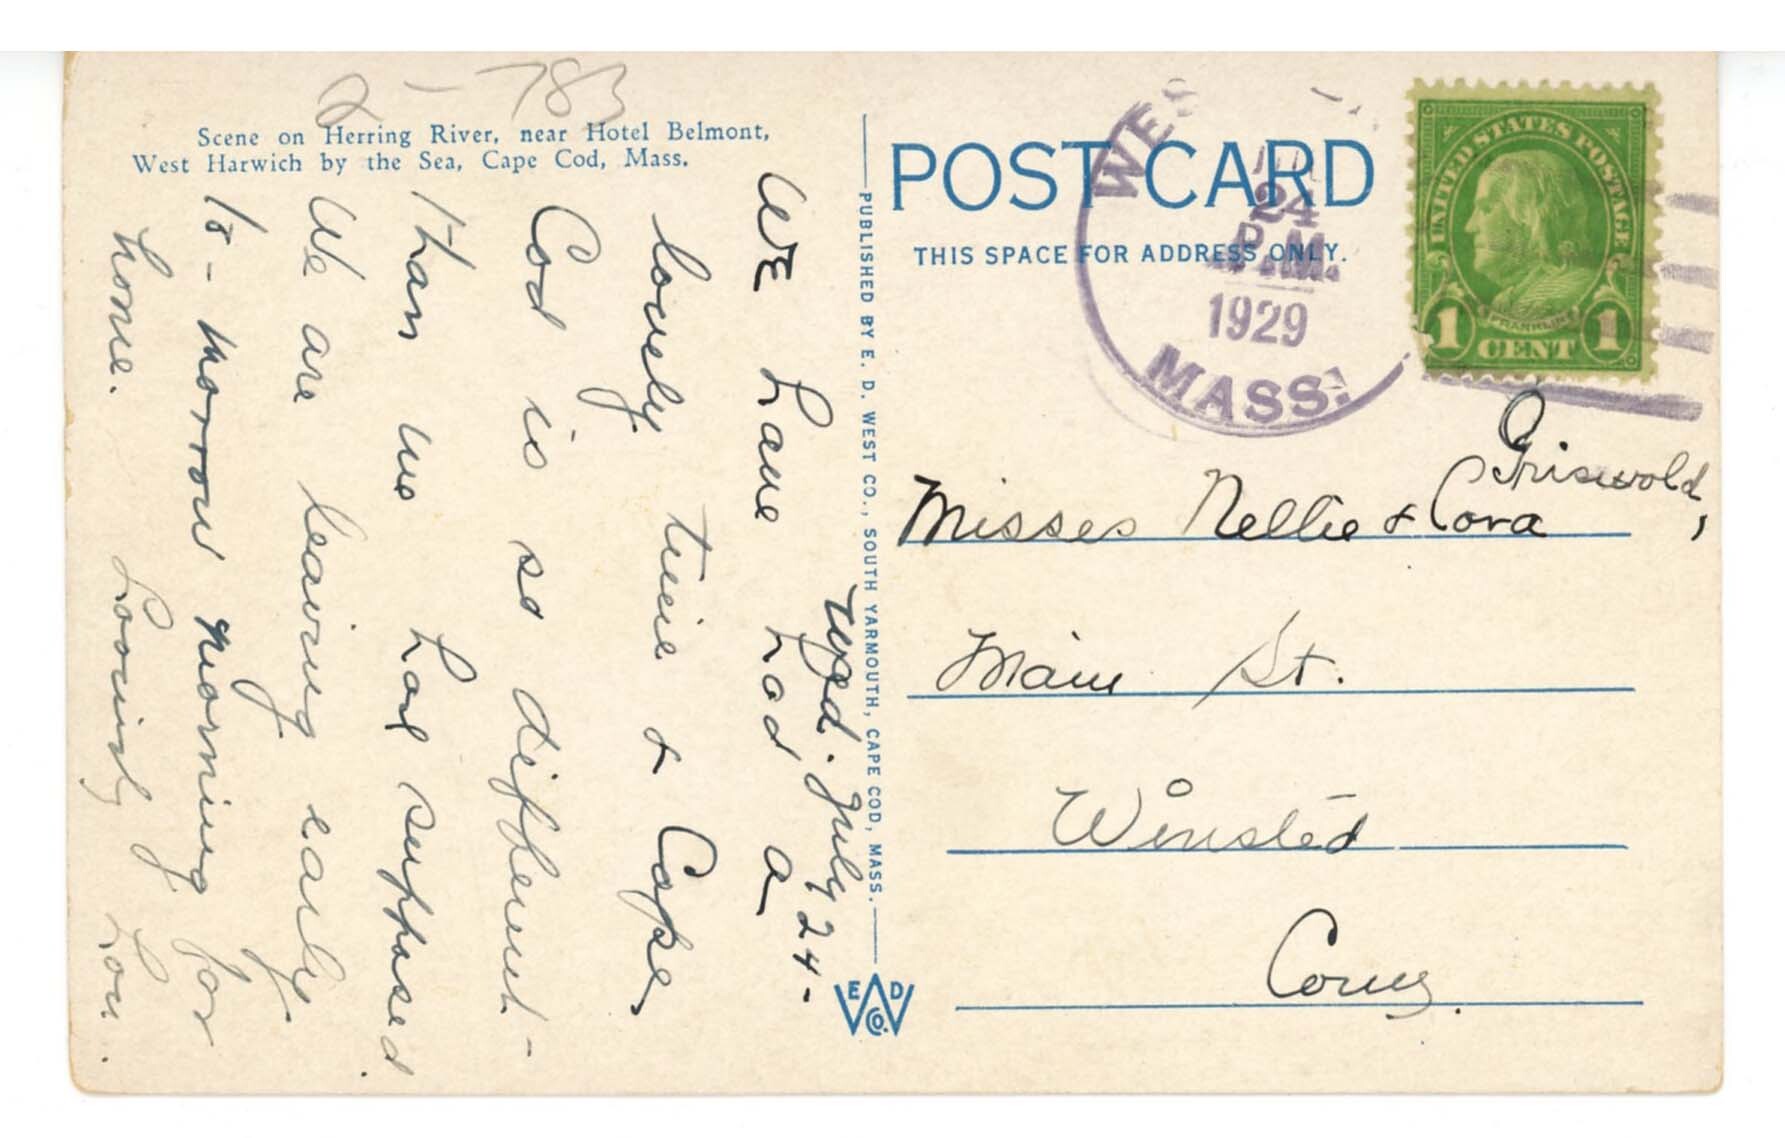 2-783
Scene on Herring River, near Hotel Belmont,
West Harwich by the Sea, Cape Cod, Mass.
Wed. July 24-
We have had a
lovely time & Cape
Cod is so different-
than we had supposed.
We are leaving early
to-morrow morning for
home. Lovingly Lou.
PUBLISHED BY E. D. WEST CO., SOUTH YARMOUTH, CAPE COD, MASS.
E D W CO.
POST CARD
THIS SPACE FOR ADDRESS ONLY.
WES
JUL
24
P.M.
1929
MASS.
UNITED STATES POSTAGE
FRANKLIN
1 CENT 1
Griswold,
Misses Nellie & Cora
Main St.
Winsted
Conn.